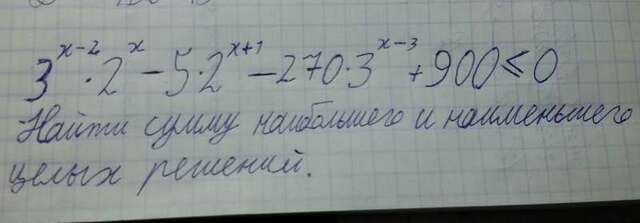 3^{x-2} · 2^x - 5 · 2^{x+1} - 270 · 3^{x-3} + 900 ≤ 0
Найти сумму наибольшего и наименьшего
целых решений.